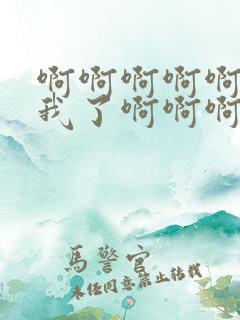 啊啊啊啊啊
我了啊啊啊
馬警官
未经同意禁止转载